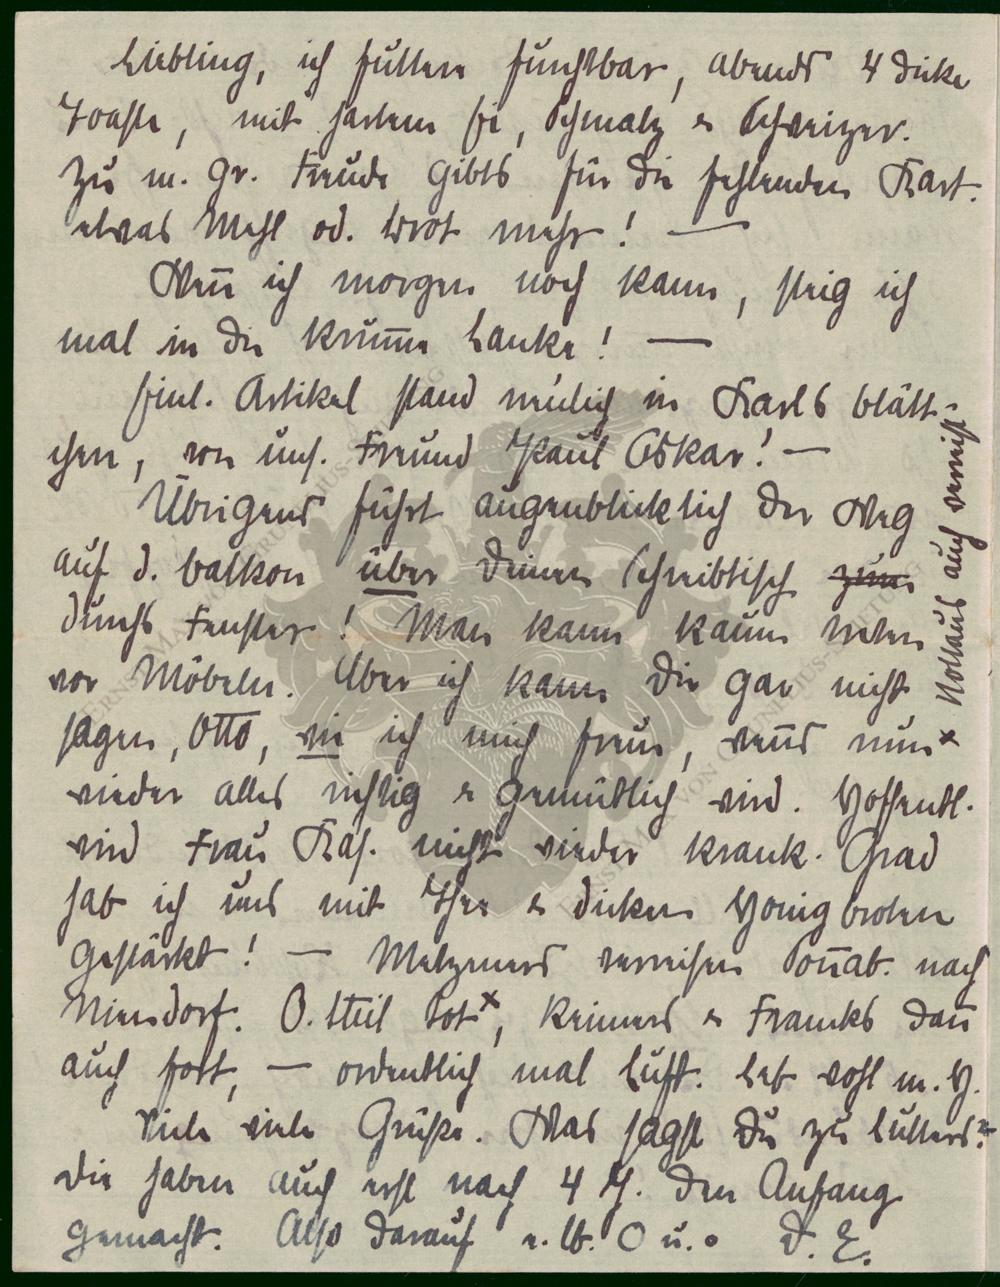 Liebling, ich futtere furchtbar, abends 4 dicke
Toaste, mit hartem Ei, Schmalz & Schweizer.
Zu m. gr. Freude gibts für die fehlenden Kart.
etwas Mehl od. Brot mehr! —
Wen̄ ich morgen noch kann, steig ich
mal in die Krum̄e Lanke! —
Einl. Artikel stand neulich in Karls Blätt-
chen, von uns. Freund Paul Oskar! —
Übrigens führt augenblicklich der Weg
auf d. Balkon über deinen Schreibtisch zum
durchs Fenster! Man kann kaum treten
vor Möbeln. Aber ich kann dir gar nicht
sagen, Otto, wie ich mich freue, wenns nun
wieder alles richtig & gemütlich wird. Hoffentl.
wird Frau Kas. nicht wieder krank. Grad
hab ich uns mit Thee & dicken Honigbroten
gestärkt! — Metzeners verreisen Son̄ab. nach
Niendorf. O. tot x, Reimers & Francks dan̄
auch fort, — ordentlich mal Luft. Leb wohl m. H.
Viele viele Grüsse. Was sagst Du zu Lutters?
Die haben auch erst nach 4 J. den Anfang
gemacht. Also darauf O u. o D. E.
x auch verreist
ERNST MAX VON GRUNELIUS-STIFTUNG
ERNST MAX VON GRUNELIUS-STIFTUNG